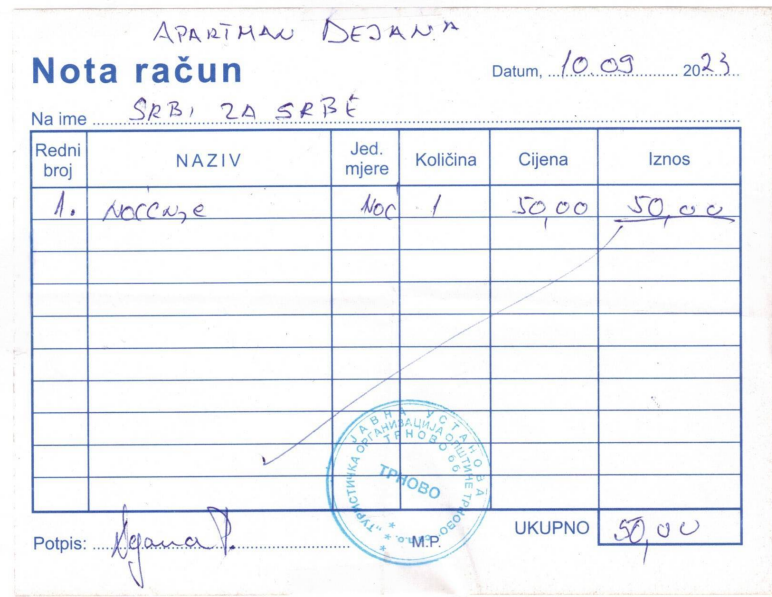 APARTMAN DEJANA
Nota račun
Datum, 10.09 2023
Na ime SRBI ZA SRBE
Redni broj NAZIV Jed. mjere Količina Cijena Iznos
1. NOĆENJE NOĆ 1 50,00 50,00
ЈАВНА УСТАНОВА
"ТУРИСТИЧКА ОРГАНИЗАЦИЈА ОПШТИНЕ ТРНОВО
ТРНОВО
Potpis: M.P. UKUPNO 50,00